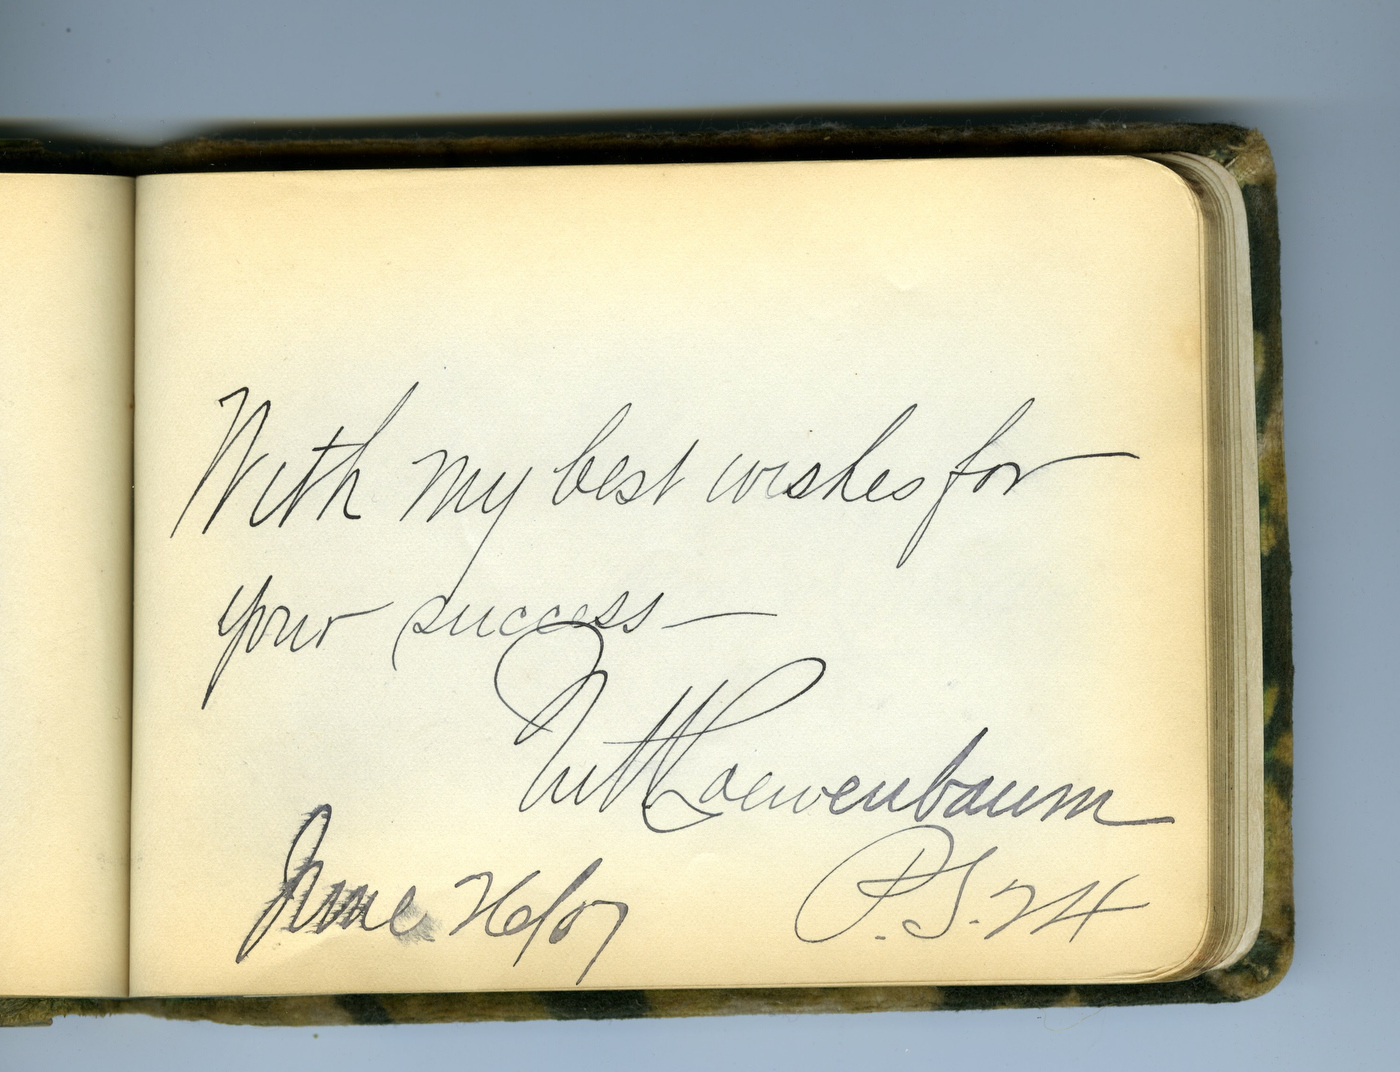 With my best wishes for
your success —
Loewenbaum
June 26/07
P.S. 24